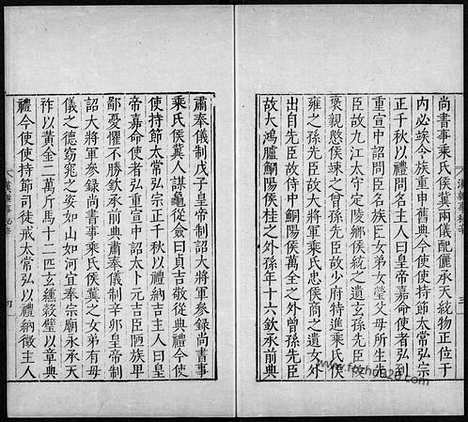 尚書事乘氏侯冀人二儀配儷承天統物正位于
內必竢令族重申舊典今使使持節太常弘宗
正千秋以禮問名主人曰皇帝嘉命使者弘到
重宣中詔問臣名族臣女弟女瑩父母所生先
臣故九江太守定陵鄉侯統之遺玄孫先臣故
襃親愍侯竦之曾孫先臣故少府特進乘氏侯
雍之孫先臣故大將軍乘氏忠侯商之遺女外
出自先臣故中鮦陽侯萬之外曾孫先臣
故大鴻臚鮦陽侯桂之外孫年十六欽承前典
漢雜事秘辛 三
肅奉儀制戊子皇帝制詔大將軍參錄尚書事
乘氏侯冀人謀龜從僉曰貞吉敬從典禮今使
使持節太常弘宗正千秋以禮納吉主人曰皇
帝嘉命使者弘重宣中詔太卜元吉臣陋族卑
鄙憂懼不勝欽承前典肅奉儀制辛卯皇帝制
詔大將軍參錄尚書事乘氏侯冀之女弟有母
儀之德窈窕之姿如山如河宜奉宗廟永承天
祚以黃金二萬斤馬十二匹玄纁穀璧以章典
禮今使使持節司徒戒太常弘以禮納徵主人
漢雜事秘辛 四